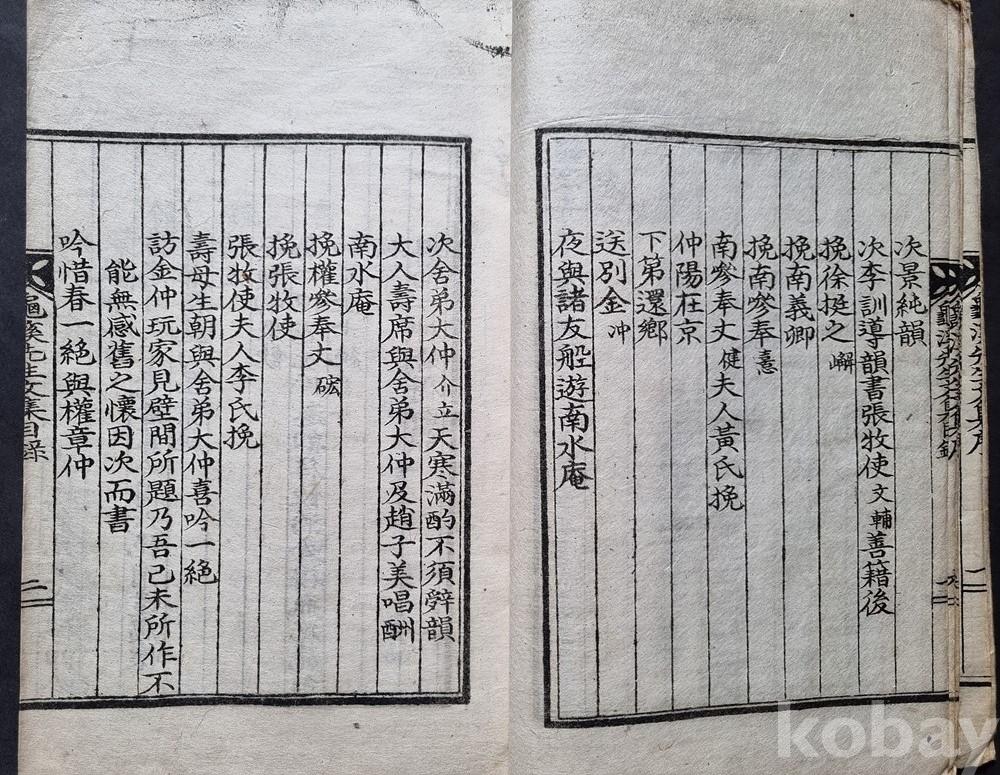 次景純韻
次李訓導韻書張牧使文輔善籍後
挽徐挺之嶰
挽南義卿
挽南叅奉憙
南叅奉丈健夫人黃氏挽
仲陽在京
下第還鄉
送別金冲
夜與諸友船遊南水庵
次舍弟大仲介立天寒滿酌不須辤韻
大人壽席與舍弟大仲及趙子美唱酬
南水庵
挽權叅奉丈硡
挽張牧使
張牧使夫人李氏挽
壽母生朝與舍弟大仲喜吟一絶
訪金仲玩家見壁間所題乃吾己未所作不
能無感舊之懷因次而書
吟惜春一絶與權章仲
龜溪先生文集目録
二
kobay